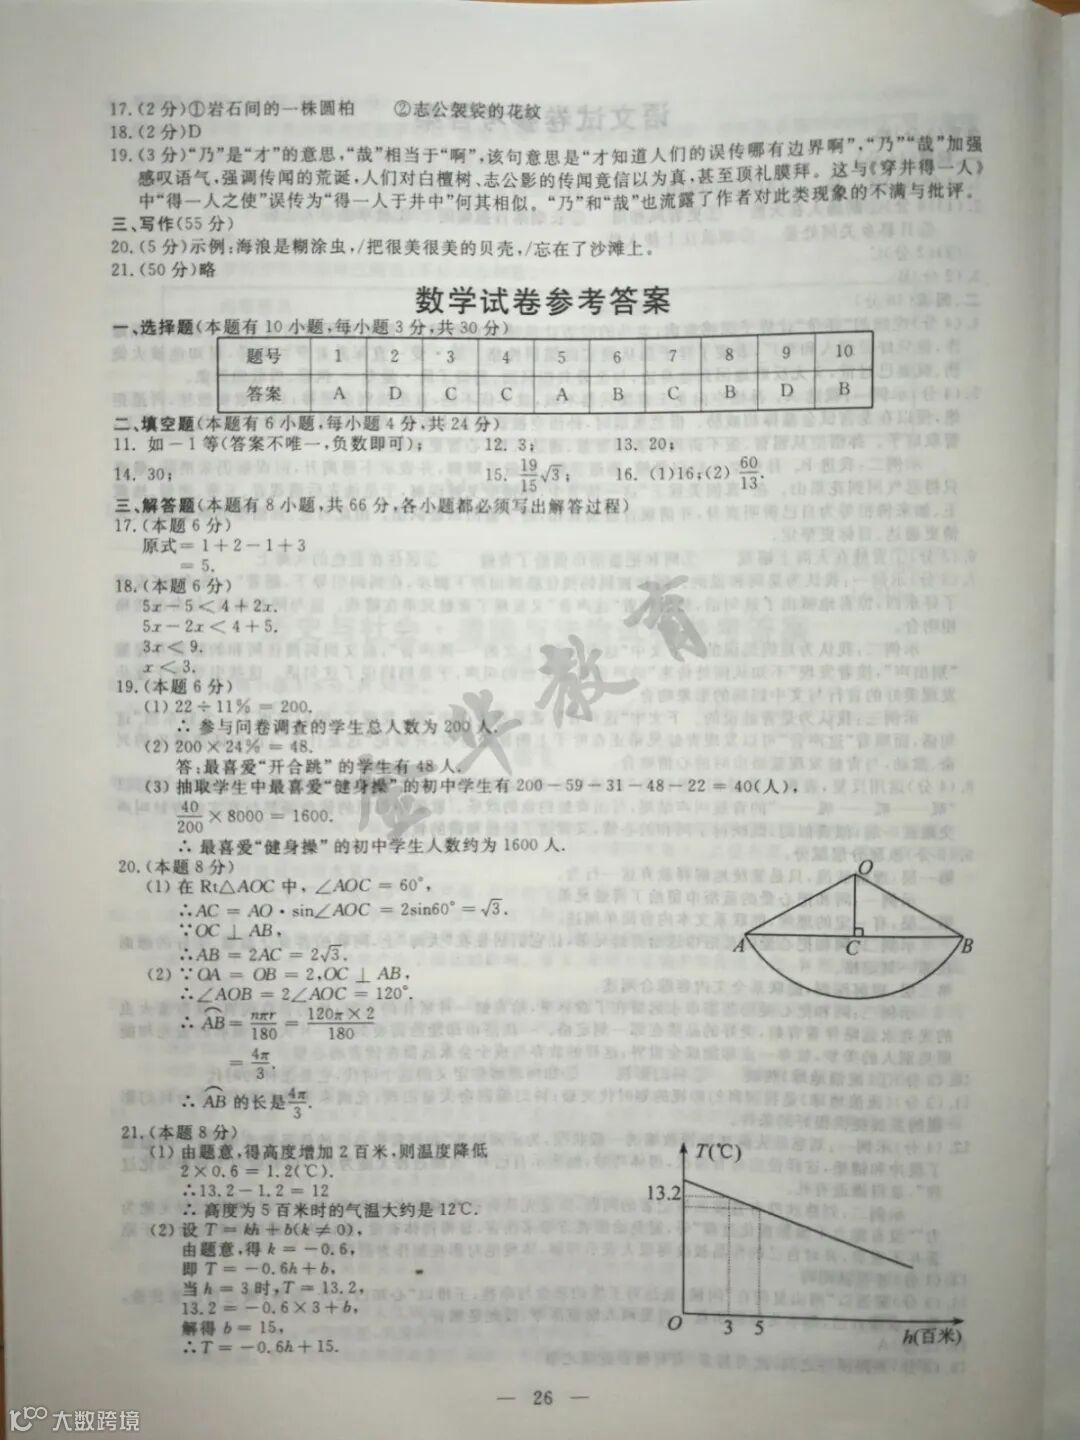 17.(2分)①岩石间的一株圆柏 ②志公袈裟的花纹
18.(2分)D
19.(3分)“乃”是“才”的意思,“哉”相当于“啊”,该句意思是“才知道人们的误传哪有边界啊”,“乃”“哉”加强
感叹语气,强调传闻的荒诞,人们对白檀树、志公影的传闻竟信以为真,甚至顶礼膜拜。这与《穿井得一人》
中“得一人之使”误传为“得一人于井中”何其相似。“乃”和“哉”也流露了作者对此类现象的不满与批评。
三、写作(55分)
20.(5分)示例:海浪是糊涂虫,/把很美很美的贝壳,/忘在了沙滩上。
21.(50分)略
数学试卷参考答案
一、选择题(本题有10小题,每小题3分,共30分)
题号 1 2 3 4 5 6 7 8 9 10
答案 A D C C A B C B D B
二、填空题(本题有6小题,每小题4分,共24分)
11. 如-1等(答案不唯一,负数即可); 12. 3; 13. 20;
14. 30; 15. 19/15√3; 16. (1)16;(2) 60/13.
三、解答题(本题有8小题,共66分,各小题都必须写出解答过程)
17.(本题6分)
原式=1+2-1+3
=5.
18.(本题6分)
5x-5<4+2x.
5x-2x<4+5.
3x<9.
x<3.
19.(本题6分)
(1) 22÷11%=200.
∴ 参与问卷调查的学生总人数为200人.
(2) 200×24%=48.
答:最喜爱“开合跳”的学生有48人.
(3) 抽取学生中最喜爱“健身操”的初中学生有200-59-31-48-22=40(人),
40/200×8000=1600.
∴ 最喜爱“健身操”的初中学生人数约为1600人.
20.(本题8分)
(1) 在Rt△AOC中,∠AOC=60°,
∴AC=AO·sin∠AOC=2sin60°=√3.
∵OC⊥AB,
∴AB=2AC=2√3.
(2) ∵OA=OB=2,OC⊥AB,
∴∠AOB=2∠AOC=120°.
∴ A͡B=nπr/180=120π×2/180
=4π/3.
∴ A͡B的长是4π/3.
O
A C B
21.(本题8分)
(1) 由题意,得高度增加2百米,则温度降低
2×0.6=1.2(℃).
∴13.2-1.2=12
∴ 高度为5百米时的气温大约是12℃.
(2) 设T=kh+b(k≠0),
由题意,得k=-0.6,
即T=-0.6h+b,
当h=3时,T=13.2,
13.2=-0.6×3+b,
解得b=15,
∴T=-0.6h+15.
T(℃)
13.2
O 3 5 h(百米)
— 26 —
大数跨境